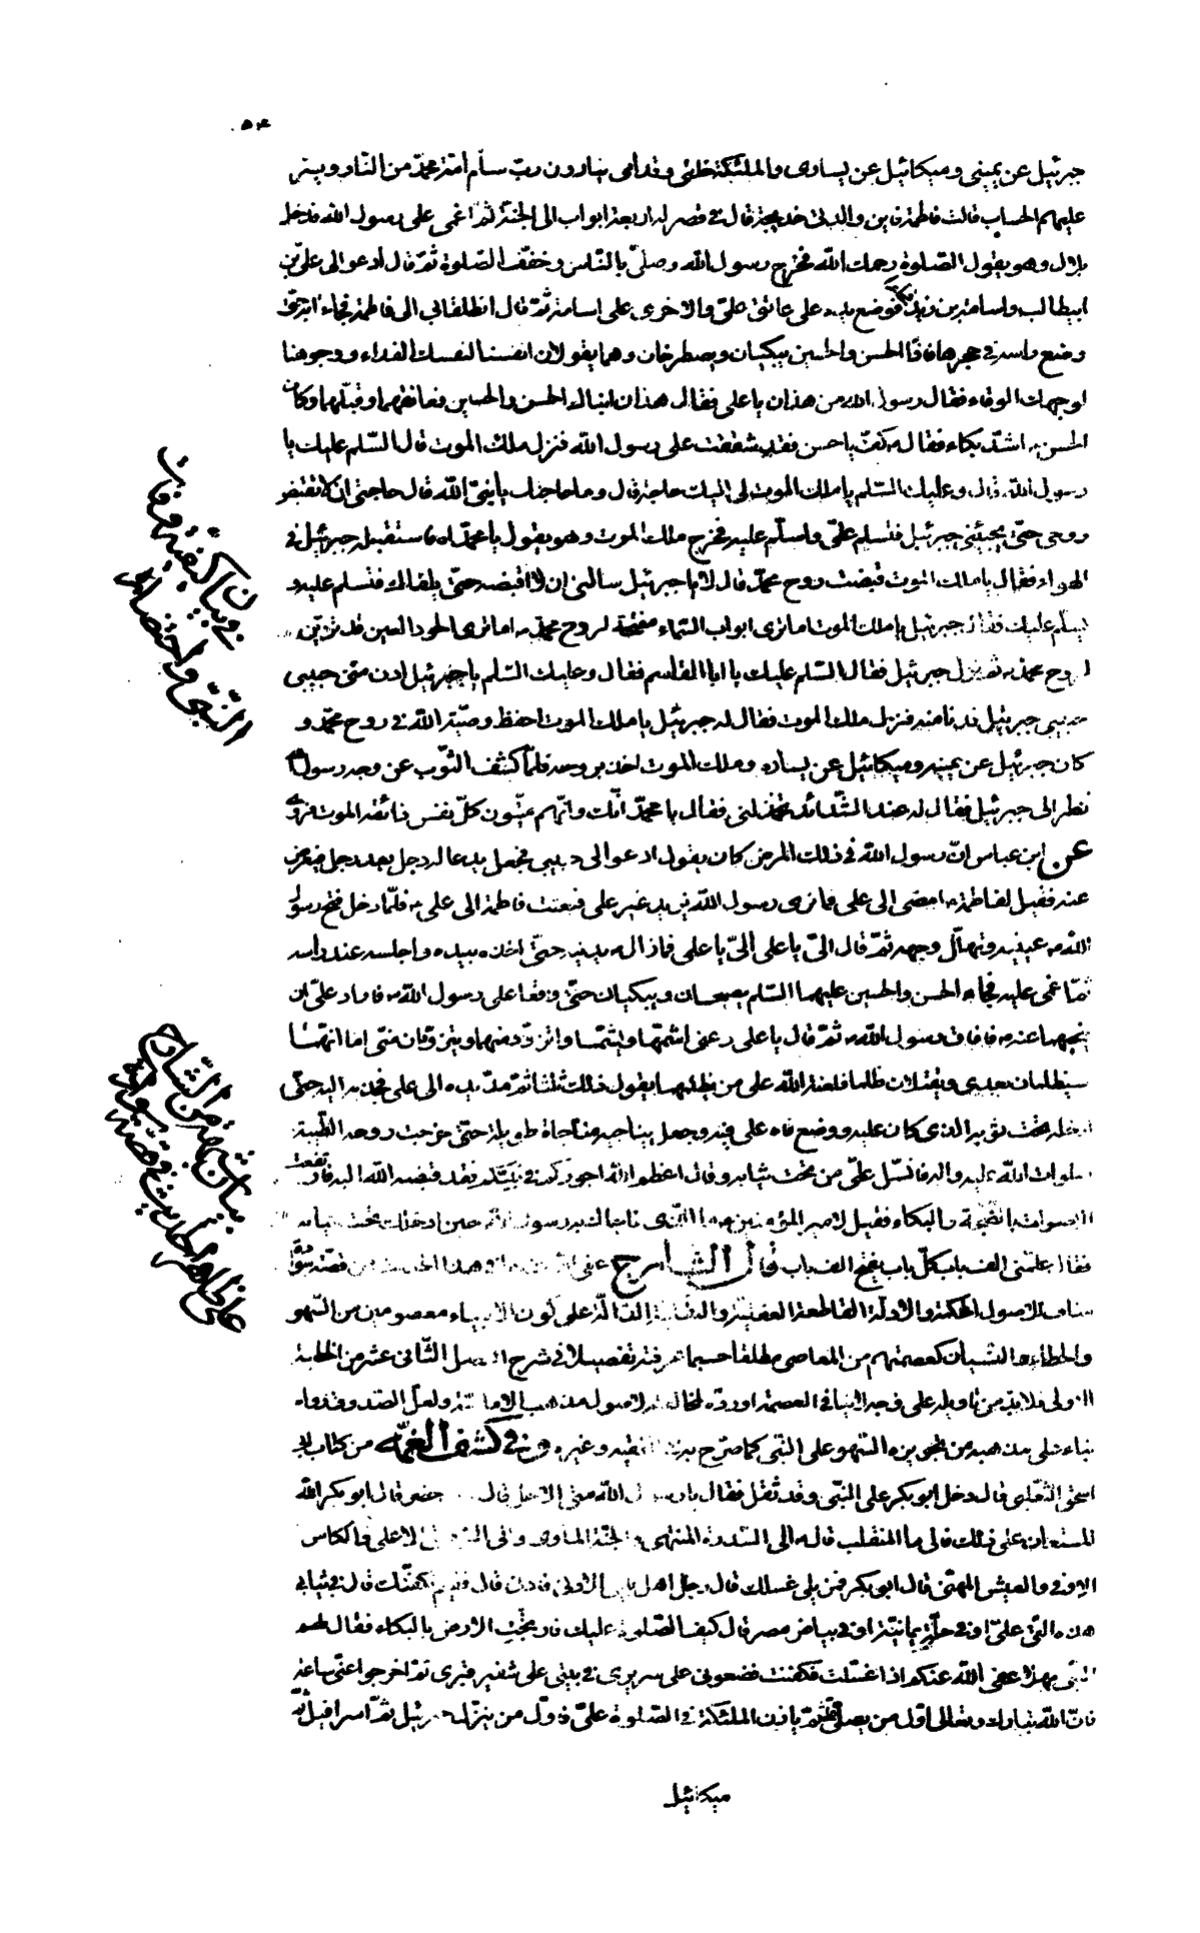 ۵۴
جبرئيل عن يمينى و ميكائيل عن يسارى والملئكة خلفى وقدامى ينادون ربّ سلّم امّة محمّد من النّار ويسّر
عليهم الحساب قالت فاطمة فاين والدتى خديجة قال فى قصر له اربعة ابواب الى الجنّة ثمّ اغمى على رسول الله فدخل
بلال وهو يقول الصّلوة رحمك الله فخرج رسول الله وصلّى بالنّاس وخفّف الصّلوة ثمّ قال ادعوا لى علىّ بن
ابيطالب واسامة بن زيد فوضع يده على عاتق علىّ والاخرى على اسامة ثمّ قال انطلقا بى الى فاطمة فجاءا به حتّى
وضع راسه فى حجرها فاذا الحسن والحسين يبكيان ويصطرخان وهما يقولان انفسنا لنفسك الفداء ووجوهنا
لوجهك الوقاء فقال رسول الله من هذان يا على فقال هذان ابناك الحسن والحسين فعانقهما وقبّلهما وكان
الحسن اشدّ بكاء فقال له كفّ يا حسن فقد شققت على رسول الله فنزل ملك الموت قال السّلم عليك يا
رسول الله قال وعليك السّلم يا ملك الموت لى اليك حاجة قال وما حاجتك يا نبىّ الله قال حاجتى ان لا تقبض
روحى حتّى يجيئنى جبرئيل فتسلم علىّ واسلّم عليه فخرج ملك الموت وهو يقول يا محمّداه فاستقبله جبرئيل فى
الهواء فقال يا ملك الموت قبضت روح محمّد قال لا يا جبرئيل سالنى ان لا اقبضه حتّى يلقاك فتسلم عليه و
يسلّم عليك فقال جبرئيل يا ملك الموت اما ترى ابواب السّماء مفتّحة لروح محمّد اما ترى الحور العين قد تزيّن
لروح محمّد ثم نزل جبرئيل فقال السّلم عليك يا ابا القاسم فقال وعليك السّلم يا جبرئيل ادن منّى حبيبى
جبرئيل فدنا منه فنزل ملك الموت فقال له جبرئيل يا ملك الموت احفظ وصيّة الله فى روح محمّد و
كان جبرئيل عن يمينه وميكائيل عن يساره وملك الموت اخذ بروحه فلمّا كشف الثّوب عن وجه رسول الله
نظر الى جبرئيل فقال له عند الشّدائد تخذلنى فقال يا محمّد انّك ميّت وانّهم ميّتون كلّ نفس ذائقة الموت فروى
عن ابن عباس انّ رسول الله فى ذلك المرض كان يقول ادعوا لى حبيبى فجعل يدعا له رجل بعد رجل فيعرض
عنه فقيل لفاطمة امضى الى على فما نرى رسول الله يريد غير على فبعثت فاطمة الى على فلمّا دخل فتح رسول
الله عينيه وتهلّل وجهه ثمّ قال الىّ يا على الىّ يا على فما زال يدنيه حتّى اخذه بيده واجلسه عند راسه
ثمّ اغمى عليه فجاء الحسن والحسين عليهما السّلم يصيحان ويبكيان حتّى وقعا على رسول الله فاراد علىّ ان
ينحّيهما عنه فافاق رسول الله ثمّ قال يا على دعنى اشمّهما ويشمّانى واتزوّد منهما ويتزوّدان منّى اما انّهما
سيظلمان بعدى ويقتلان ظلما فلعنة الله على من يظلمهما يقول ذلك ثلثا ثمّ مدّ يده الى على فجذبه اليه حتّى
ادخله تحت ثوبه الذى كان عليه ووضع فاه على فيه وجعل يناجيه مناجاة طويلة حتّى خرجت روحه الطّيبة
صلوات الله عليه واله فانسلّ علىّ من تحت ثيابه وقال اعظم الله اجوركم فى نبيّكم فقد قبضه الله اليه فارتفعت
الاصوات بالضّجّة والبكاء فقيل لامير المؤمنين ما الّذى ناجاك به رسول الله حين ادخلك تحت ثيابه
فقال علّمنى الف باب كلّ باب يفتح الف باب قال الشارح عفى الله عنه هذا الحديث من قصّة سوادة
مناف للاصول المحكمة والادلّة القاطعة العقليّة والنّقلية الدّالّة على كون الانبياء معصومين من السّهو
والخطاء والنسيان كعصمتهم من المعاصى مطلقا حسبما عرفته تفصيلا فى شرح الفصل الثّانى عشر من الخطبة
الاولى فلا بدّ من تاويله على وجه لا ينافى العصمة او ردّه لمخالفته لاصول مذهب الاماميّة ولعلّ الصدوق رواه
بناء على مذهبه من تجويزه السّهو على النّبى كما صرّح به فى الفقيه وغيره وفى كشف الغمّه من كتاب ابى
اسحق الثّعلبى قال دخل ابو بكر على النّبى وقد ثقل فقال يا رسول الله متى الاجل قال حضر قال ابو بكر الله
المستعان على ذلك فالى ما المنقلب قال الى السّدرة المنتهى والجنّة الماوى والى الرّفيق الاعلى والكاس
الاوفى والعيش المهنّى قال ابو بكر فمن يلى غسلك قال رجال اهل بيتى الادنى فالادنى قال ففيم نكفّنك قال فى ثيابى
هذه الّتى علىّ او فى حلّة يمانيّة او فى بياض مصر قال كيف الصّلوة عليك فارتجّت الارض بالبكاء فقال لهم
النّبى مهلا عفى الله عنكم اذا غسّلت وكفّنت فضعونى على سريرى فى بيتى على شفير قبرى ثمّ اخرجوا عنّى ساعة
فانّ الله تبارك وتعالى اوّل من يصلّى علىّ ثمّ ياذن الملئكة فى الصّلوة علىّ فاوّل من ينزل جبرئيل ثمّ اسرافيل ثمّ
ميكائيل
فى بيان كيفيّة وفات
النّبىّ واحتضاره
بيان شبهة من الشّارح